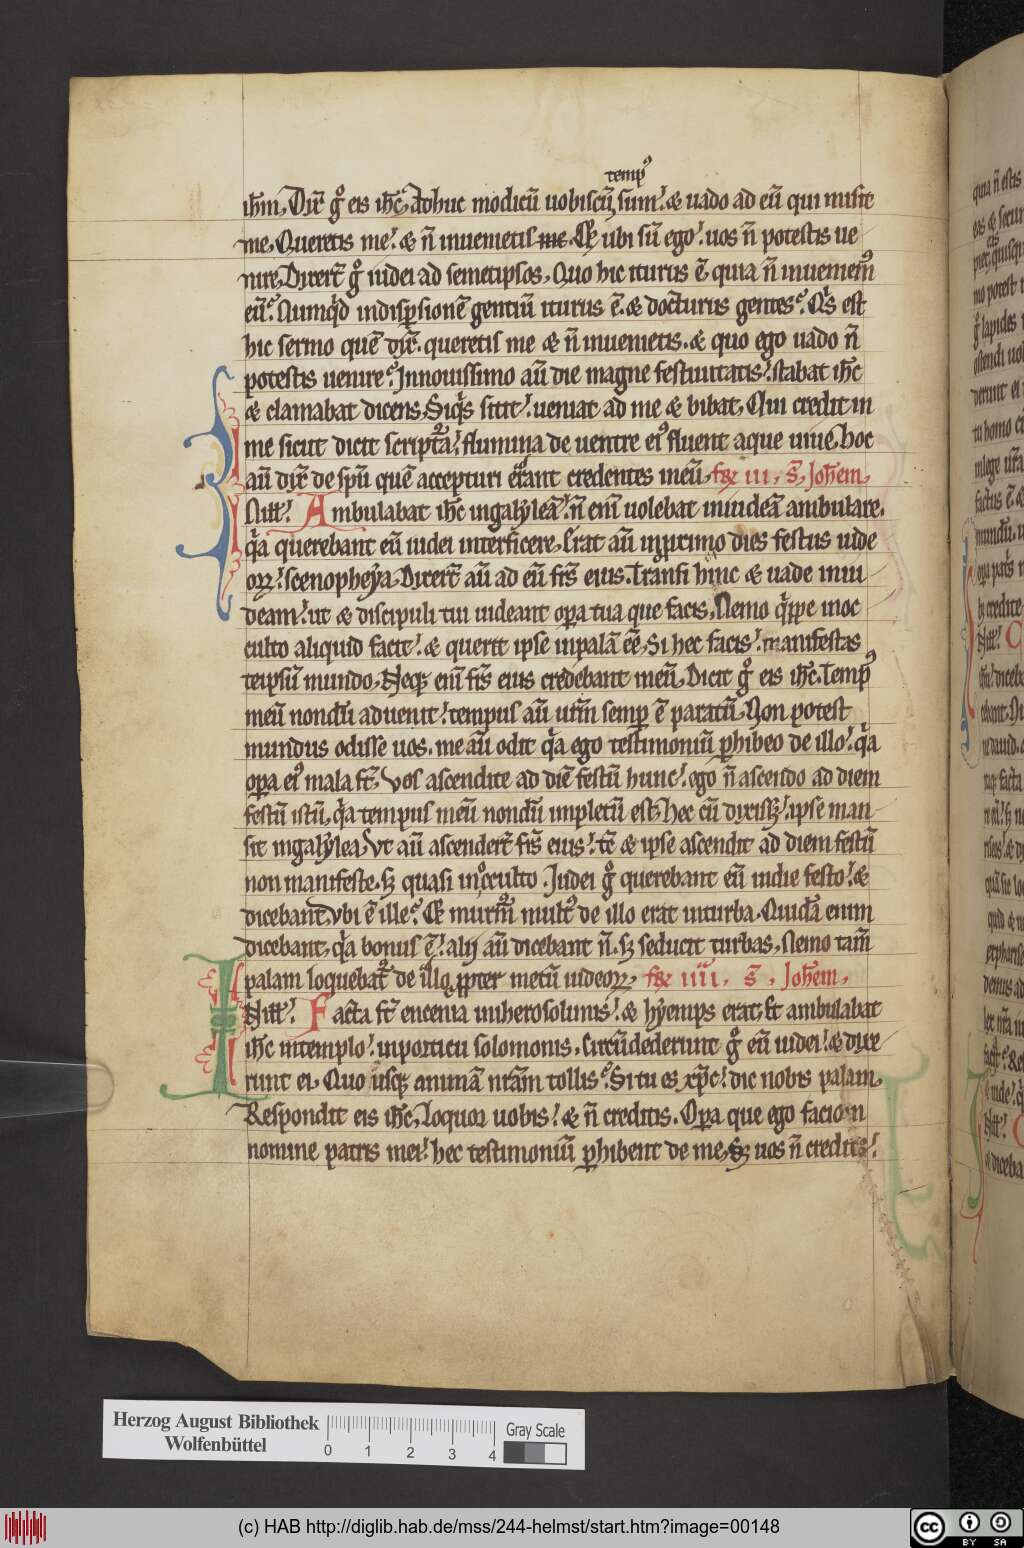 temp᷒
ih̄m. Dix̄ gͦ eis ih̄c. Adhuc modicū uobiscū sum. & uado ad eū qui misit
me. Queretis me. & n̄ inuenietis me. Et ubi sū ego. uos n̄ potestis ue
nire. Dixer̄t gͦ iudei ad semetipsos. Quo hic iturus ē quia n̄ inueniem᷒
eū. Numqͥd indispersionē gentiū iturus ē. & docturus gentes. Qͥs est
hic sermo quē dix̄. queretis me & n̄ inuenietis. & quo ego uado n̄
potestis uenire. Innouissimo aū die magne festiuitatis. stabat ih̄c
& clamabat dicens. Siqͥs sitit. ueniat ad me & bibat. Qui credit in
me sicut dicit scriptᷓa. flumina de uentre ei᷒ fluent aque uiue. hoc
aū dix̄ de sp̄u quē accepturi erant credentes ineū. fr̄ iii. s̄. Joh̄em.
In ill̄. Ambulabat ih̄c ingalyleā. n̄ eni̅ uolebat iniudeā ambulare.
qͣa querebant eū iudei interficere. Erat aū inproximo dies festus iude
oꝝ. scenopheya. Dixer̄t aū ad eū fr̄s eius. Transi hinc & uade iniu
deam. ut & discipuli tui uideant oꝑa tua que facis. Nemo qͥppe inoc
culto aliquid facit. & querit ipse inpalā eē. Si hec facis. manifestas
teipsū mundo. Neqꝫ eni̅ fr̄s eius credebant ineū. Dicit gͦ eis ih̄c. Temp᷒
meū nondū aduenit. tempus aū ur̄m semꝑ ē paratū. Non potest
mundus odisse uos. me aū odit qͣa ego testimoniū ꝑhibeo de illo. qͣa
oꝑa ei᷒ mala st̄. Vos ascendite ad diē festū hunc. ego n̄ ascendo ad diem
festū istū. qͣa tempus meū nondū impletū est. hec cū dixissꝫ. ipse man
sit ingalylea. Vt aū ascender̄t fr̄s eius. tc̄ & ipse ascendit ad diem festū
non manifeste. sꝫ quasi inocculto. Iudei gͦ querebant eū indie festo. &
dicebant. Vbi ē ille. Et murm᷒ mult᷒ de illo erat inturba. Quidā enim
dicebant. qͣa bonus ē. alij aū dicebant n̄. sꝫ seducit turbas. Nemo tam̄
palam loquebat᷑ de illo. ꝓpter metū iudeoꝝ. fr̄ iiii. s̄. Joh̄em.
In ill̄. Facta st̄ encenia inihersolimis. & hyemps erat. Et ambulabat
ih̄c intemplo. inporticu solomonis. Circūdederunt gͦ eū iudei. & dixe
runt ei. Quo usqꝫ animā nr̄am tollis. Si tu es xp̄c. dic nobis palam.
Respondit eis ih̄c. Loquor uobis. & n̄ creditis. Oꝑa que ego facio in
nomine patris mei. hec testimoniū ꝑhibent de me. Sꝫ uos n̄ creditis.
Herzog August Bibliothek
Wolfenbüttel
0 1 2 3 4
Gray Scale
(c) HAB http://diglib.hab.de/mss/244-helmst/start.htm?image=00148
cc BY SA